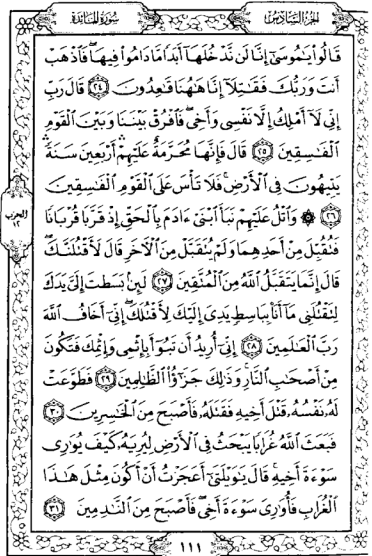 الجزء السادس
سورة المائدة
قَالُواْ يَٰمُوسَىٰٓ إِنَّا لَن نَّدْخُلَهَآ أَبَدًا مَّا دَامُواْ فِيهَا فَٱذْهَبْ
أَنتَ وَرَبُّكَ فَقَٰتِلَآ إِنَّا هَٰهُنَا قَٰعِدُونَ ٢٤ قَالَ رَبِّ
إِنِّى لَآ أَمْلِكُ إِلَّا نَفْسِى وَأَخِى فَٱفْرُقْ بَيْنَنَا وَبَيْنَ ٱلْقَوْمِ
ٱلْفَٰسِقِينَ ٢٥ قَالَ فَإِنَّهَا مُحَرَّمَةٌ عَلَيْهِمْ أَرْبَعِينَ سَنَةً
يَتِيهُونَ فِى ٱلْأَرْضِ فَلَا تَأْسَ عَلَى ٱلْقَوْمِ ٱلْفَٰسِقِينَ
٢٦ ۞ وَٱتْلُ عَلَيْهِمْ نَبَأَ ٱبْنَىْ ءَادَمَ بِٱلْحَقِّ إِذْ قَرَّبَا قُرْبَانًا
الحزب
١٢
فَتُقُبِّلَ مِنْ أَحَدِهِمَا وَلَمْ يُتَقَبَّلْ مِنَ ٱلْءَاخَرِ قَالَ لَأَقْتُلَنَّكَ
قَالَ إِنَّمَا يَتَقَبَّلُ ٱللَّهُ مِنَ ٱلْمُتَّقِينَ ٢٧ لَئِنۢ بَسَطتَ إِلَىَّ يَدَكَ
لِتَقْتُلَنِى مَآ أَنَا۠ بِبَاسِطٍ يَدِىَ إِلَيْكَ لِأَقْتُلَكَ إِنِّىٓ أَخَافُ ٱللَّهَ
رَبَّ ٱلْعَٰلَمِينَ ٢٨ إِنِّىٓ أُرِيدُ أَن تَبُوٓأَ بِإِثْمِى وَإِثْمِكَ فَتَكُونَ
مِنْ أَصْحَٰبِ ٱلنَّارِ وَذَٰلِكَ جَزَٰٓؤُاْ ٱلظَّٰلِمِينَ ٢٩ فَطَوَّعَتْ
لَهُۥ نَفْسُهُۥ قَتْلَ أَخِيهِ فَقَتَلَهُۥ فَأَصْبَحَ مِنَ ٱلْخَٰسِرِينَ ٣٠
فَبَعَثَ ٱللَّهُ غُرَابًا يَبْحَثُ فِى ٱلْأَرْضِ لِيُرِيَهُۥ كَيْفَ يُوَٰرِى
سَوْءَةَ أَخِيهِ قَالَ يَٰوَيْلَتَىٰٓ أَعَجَزْتُ أَنْ أَكُونَ مِثْلَ هَٰذَا
ٱلْغُرَابِ فَأُوَٰرِىَ سَوْءَةَ أَخِى فَأَصْبَحَ مِنَ ٱلنَّٰدِمِينَ ٣١
١١١